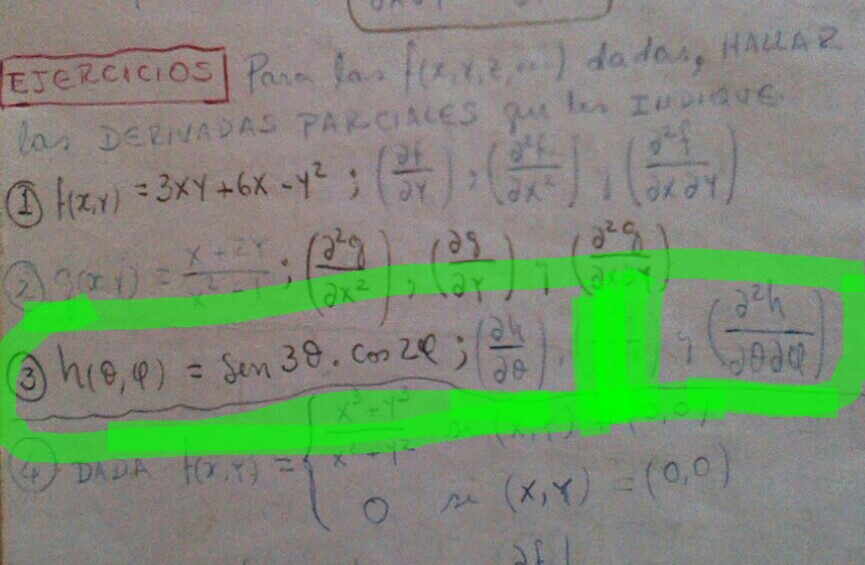 EJERCICIOS Para las f(x,y,z,...) dadas, HALLAR
las DERIVADAS PARCIALES que les INDIQUE.
① f(x,y) = 3xy+6x-y² ; (∂f/∂y) ; (∂²f/∂x²) ; (∂²f/∂x∂y)
② g(x,y) = (x+2y)/(x²-1) ; (∂²g/∂x²) , (∂g/∂y) , (∂²g/∂x∂y)
③ h(θ,φ) = sen 3θ . cos 2φ ; (∂h/∂θ) , ; (∂²h/∂θ∂φ)
④ DADA f(x,y) = { (x³+y³)/(x²+y²) si (x,y) (0,0)
0 si (x,y) = (0,0)